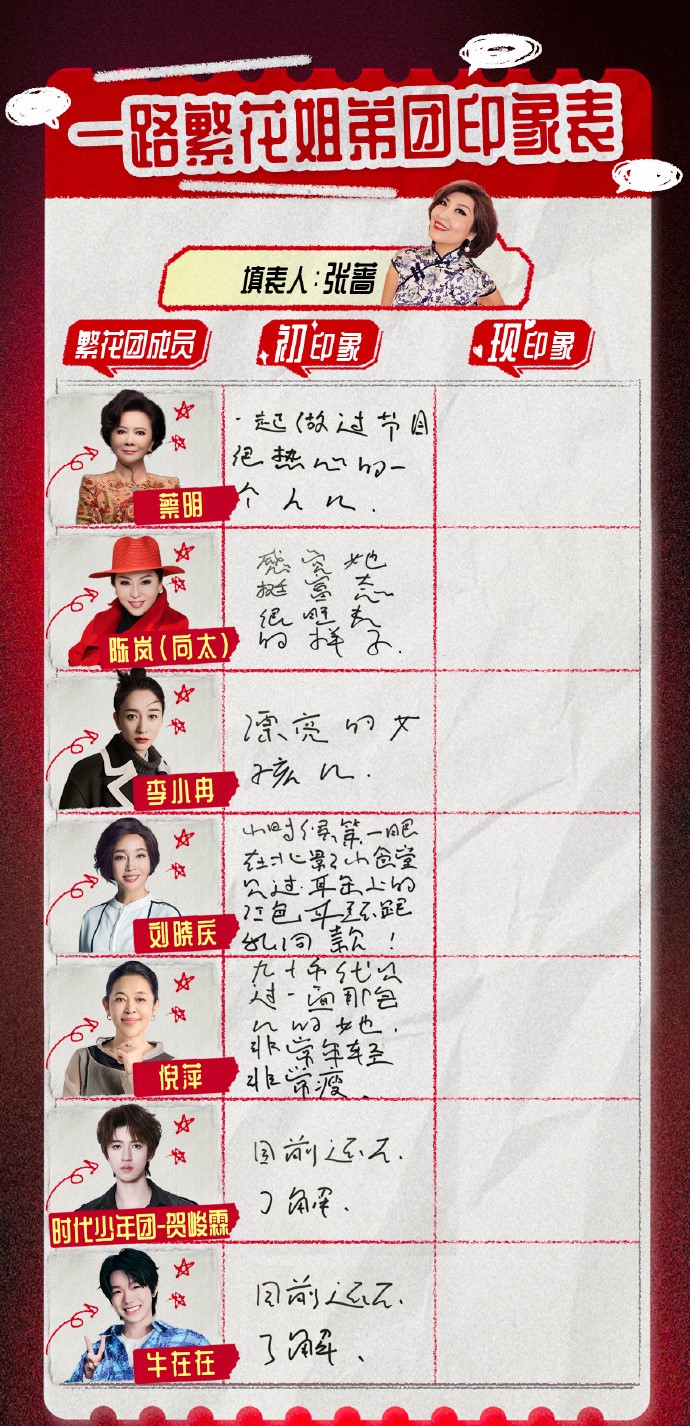 一路繁花姐弟团印象表
填表人:张蔷
繁花团成员
初印象
现印象
一起做过节目
很热心的一
个人儿.
蔡明
感觉她
挺富态
很旺夫
的样子.
陈岚(向太)
漂亮的女
孩儿.
李小冉
小时候第一眼
在北影小食堂
见过.耳朵上的
红色耳环跟
我同款!
刘晓庆
九十年代见
过一面那会
儿的她.
非常年轻
非常瘦.
倪萍
目前还不.
了解.
时代少年团-贺峻霖
目前还不.
了解.
牛在在